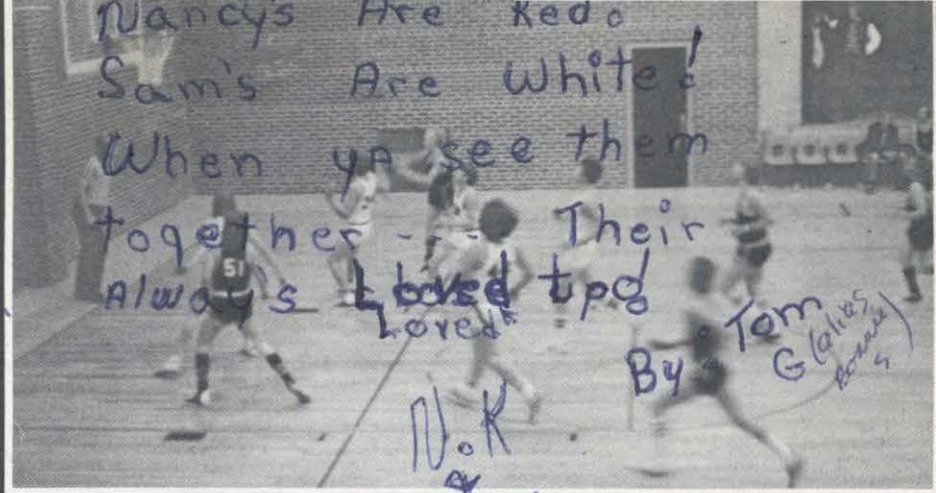 Nancy's Are Red.
Sam's Are White!
When ya see them
together --- Their
Always Loved up!
Loved
By: Tom
G (alias
Bonnie
S)
N.K
51